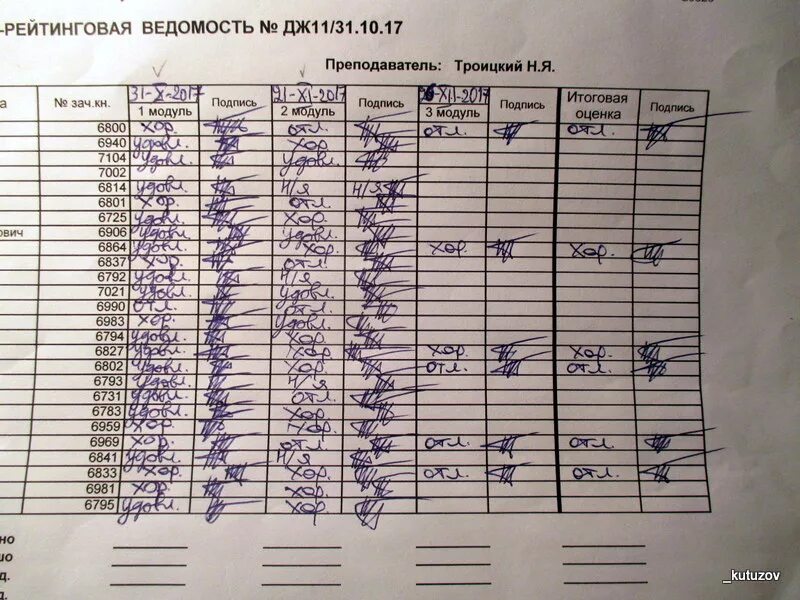 -РЕЙТИНГОВАЯ ВЕДОМОСТЬ № ДЖ11/31.10.17
Преподаватель: Троицкий Н.Я.
а № зач.кн. 31-X-2017 1 модуль Подпись 21-XI-2017 2 модуль Подпись 6-XII-2017 3 модуль Подпись Итоговая оценка Подпись
6800 хор. отл. отл. отл.
6940 удовл. хор.
7104 удовл. удовл.
7002
6814 удовл. н/я н/я
6801 хор. отл.
6725 удовл. хор.
ович 6906 удовл. удовл.
6864 удовл. хор. хор. хор.
6837 хор. отл.
6792 удовл. н/я
7021 удовл. удовл.
6990 отл. отл.
6983 хор. удовл.
6794 удовл. хор.
6827 удовл. хор. хор. хор.
6802 удовл. хор. отл. отл.
6793 удовл. н/я
6731 удовл. отл.
6783 удовл. хор.
6959 хор. хор.
6969 хор. отл. отл. отл.
6841 удовл. н/я
6833 хор. хор. отл. отл.
6981 хор. хор.
6795 удовл. хор.
но
шо
д.
д.
_kutuzov